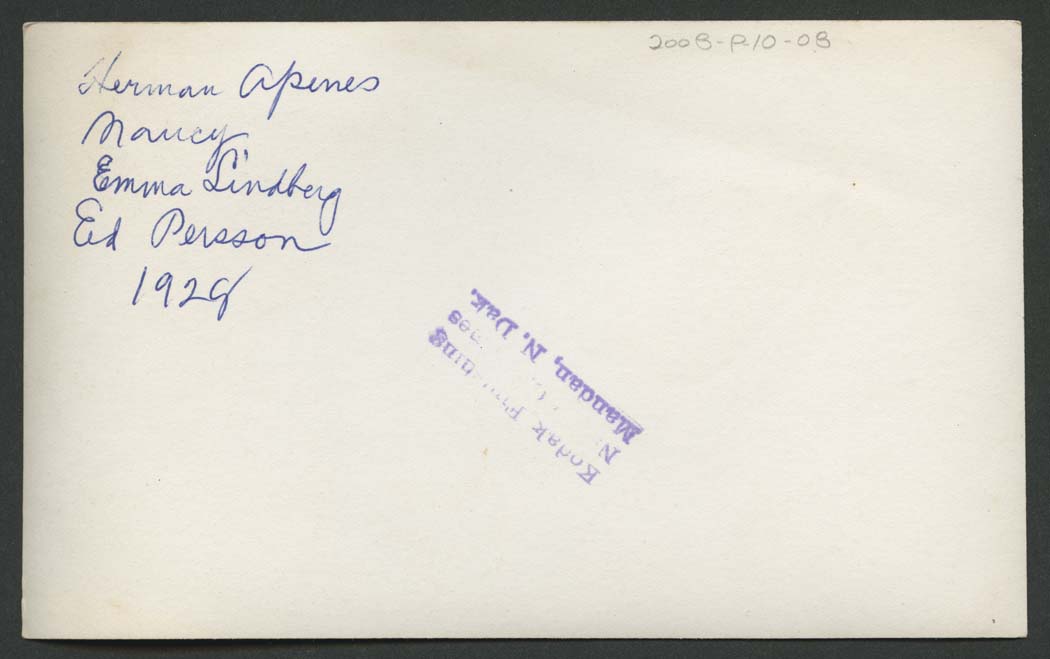 2008-P-10-08
Herman Apenes
Nancy
Emma Lindberg
Ed Persson
1928
Kodak
N.
Mandan, N. Dak.